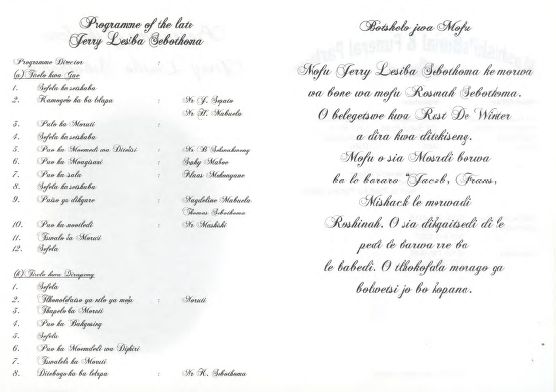 Programme of the late
Jerry Lesiba Sebothoma
Programme Director
(a) Tirelo kwa Gae
1. Sefela ka setshaba
2. Kamogelo ka ba lelapa : Mr J. Sepato
Mr H. Mabuela
3. Palo ka Moruti :
4. Sefela ka setshaba
5. Puo ka Moemedi wa Ditsheki : Mr B
6. Puo ka Moagisani : Baby Maboe
7. Puo ka sala : Klaas
8. Sefela ka setshaba
9. Paleo ya dikgare : Magdeline Mabuela
Thomas Sebothoma
10. Puo ka mootledi : Mr Mashishi
11. Tumalo ša Moruti
12. Sefela
(b) Tirelo kwa Dirapeng
1. Sefela
2. Tlhomolofatso ya selo ya moja : Moruti
3. Thapelo ka Moruti
4. Puo ka Bakgosing
5. Sefela
6. Puo ka Moemeledi wa Dipheri
7. Tumalelo ka Moruti
8. Ditebogo ka ba lelapa : Mr K. Sebothoma
Botsholo jwa Mofu
Mofu Jerry Lesiba Sebothoma ke morwa
wa bone wa mofu Rosinah Sebothoma.
O belegetswe kwa Rust De Winter
a dira kwa ditshiseng.
Mofu o sia Mosadi borwa
ba le bararo "Jacob, Frans,
Mishack le morwadi
Roshinah. O sia dikgaitsedi di le
pedi le barwa rre ba
le babedi. O tlhokofala morago ga
bolwetsi jo bo kopana.